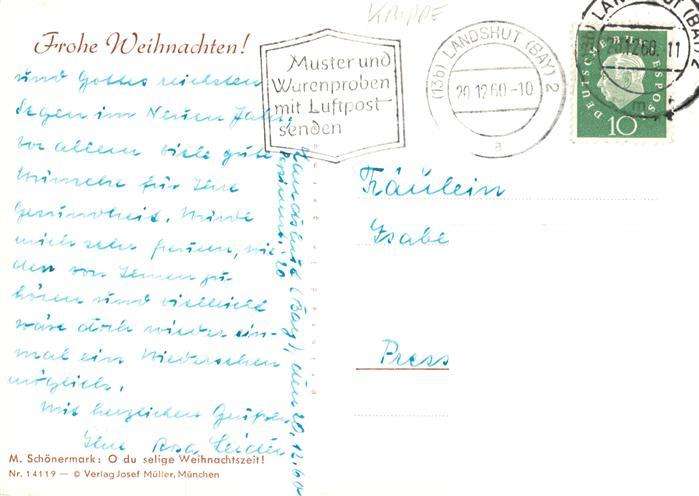 KRIPPE
Frohe Weihnachten!
und Gottes reichsten
Segen im Neuen Jahr,
vor allem viele gute
Wünsche für Ihre
Gesundheit. Würde
mich sehr freuen, wie-
der von Ihnen zu
hören und vielleicht
wäre doch wieder ein-
mal ein Wiedersehen
möglich.
Mit herzlichen Grüßen
Ihre Rosa
Landshut (Bay), den 20.12.60
M. Schönermark: O du selige Weihnachtszeit!
Nr. 14119 — © Verlag Josef Müller, München
Muster und
Warenproben
mit Luftpost
senden
(13b) LANDSHUT (BAY) 2
20.12.60-10
a
LANDSHUT (BAY) 2
20.12.60. 11
DEUTSCHE BUNDESPOST
10
Fräulein
Isabe
Press